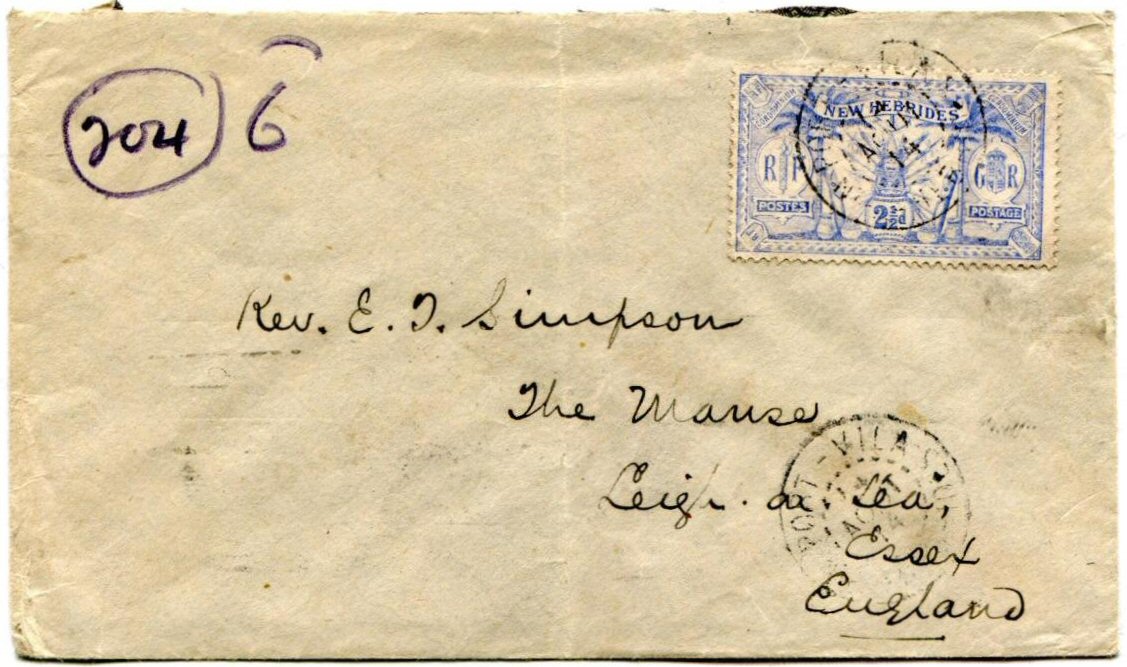 204 6
CONDOMINIUM NEW HEBRIDES CONDOMINIUM
R F G R
POSTES 2½d POSTAGE
AOUT
14
Rev. E. T. Simpson
The Manse
Leigh. on Sea,
Essex
England
PORT-VILA
AOUT
14